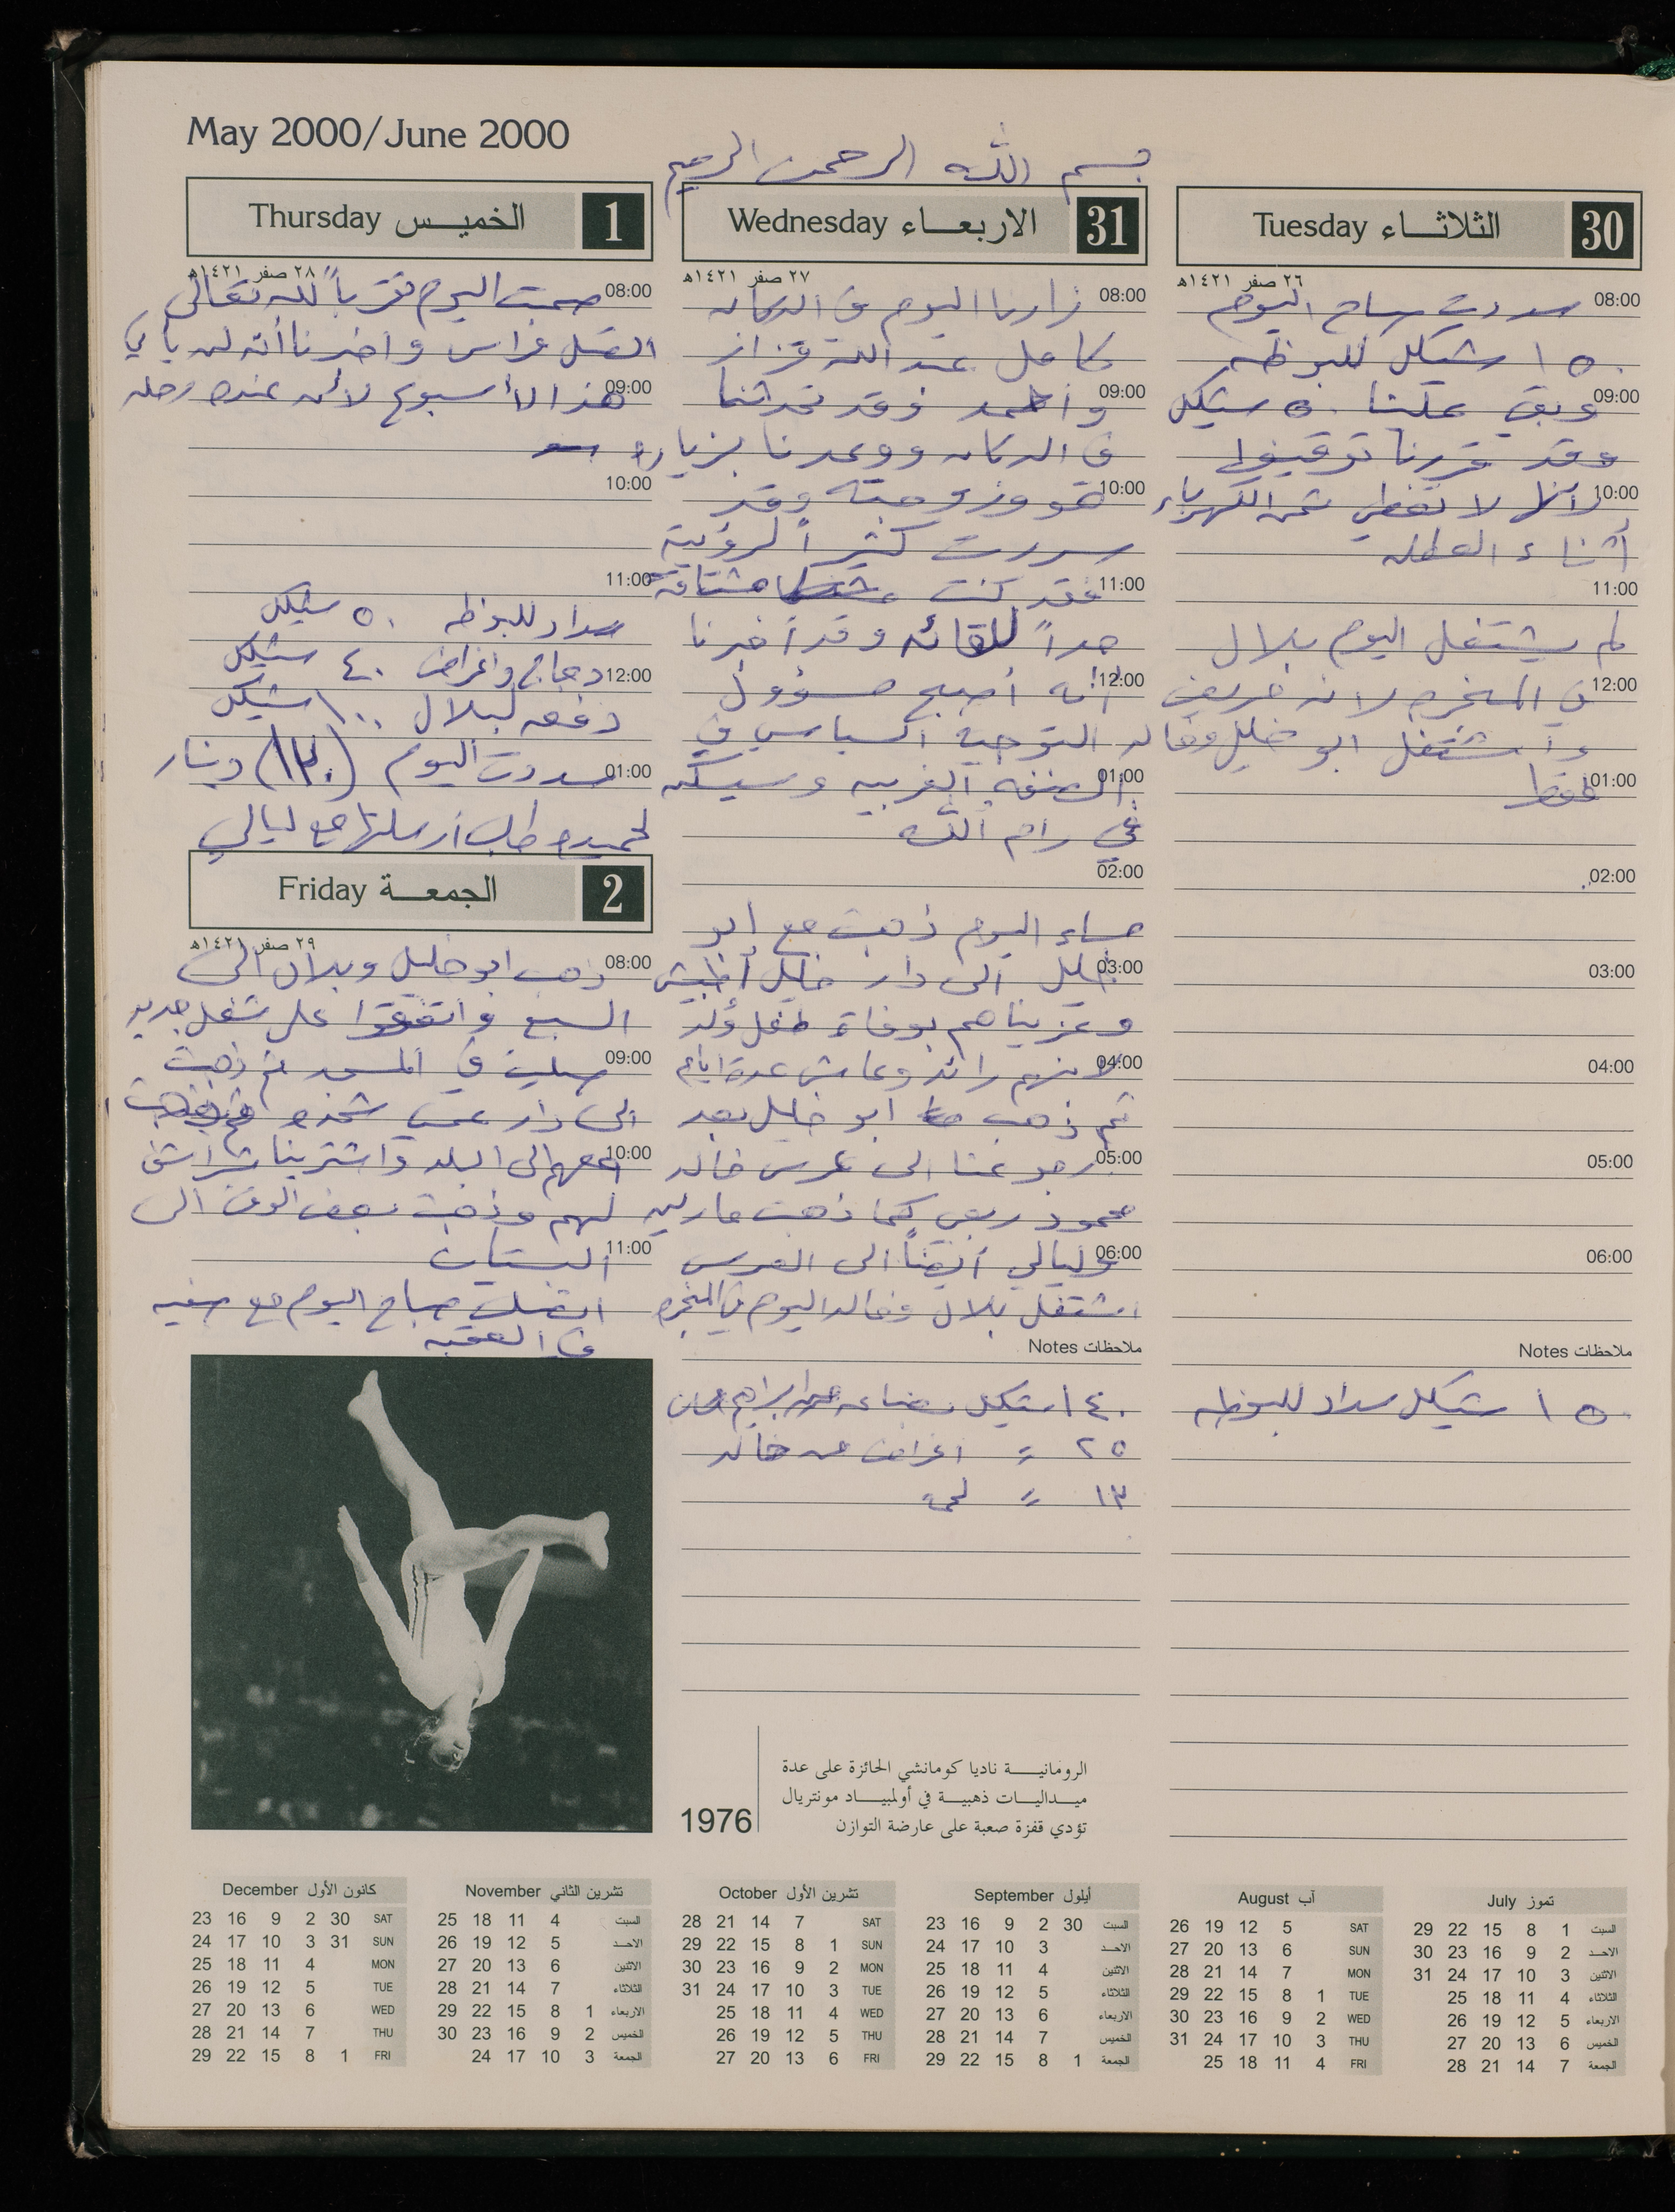 May 2000/June 2000
بسم الله الرحمن الرحيم
30 الثلاثاء Tuesday
٢٦ صفر ١٤٢١هـ
08:00 سددت صباح اليوم
١٥٠ شيكل للبوظه
09:00 وبقي علينا ٥٠ شيكل
وقد قررنا توقيفها
10:00 لأنها لا تغطي ثمن الكهرباء
أثناء العطله
11:00
لم يشتغل اليوم بلال
12:00 في المنجره لانه مريض
واشتغل ابو خليل وخالد
01:00 فقط
02:00
03:00
04:00
05:00
06:00
ملاحظات Notes
١٥٠ شيكل سداد للبوظه
31 الاربعاء Wednesday
٢٧ صفر ١٤٢١هـ
08:00 زارنا اليوم في الدكان
كامل عبد الله قزاز
09:00 وأحمد وقد تحدثنا
في الدكان ووعدنا بزياره
10:00 هو وزوجته وقد
سررت كثيراً لرؤيته
11:00 فقد كنت مشتاقة
جداً للقائه وقد أخبرنا
12:00 أنه أصبح مسؤول
التوجيه السياسي في
01:00 الضفه الغربيه وسيسكن
في رام الله
02:00
مساء اليوم ذهبت مع ابو
03:00 خليل الى دار خليل
وعزيناهم بوفاة طفل ولد
04:00 لابنهم رائد وعاش عدة ايام
ثم ذهب ابو خليل بعد
05:00 رجوعنا الى عرس خالد
محمود ربعي كما ذهبت مارلين
06:00 وليالي أيضاً الى العرس
اشتغل بلال وخالد اليوم في المنجره
ملاحظات Notes
١٤٠ شيكل بضاعه ابراهيم
٢٥ = اغراض من خالد
١٣ = لحمة
1 الخميس Thursday
٢٨ صفر ١٤٢١هـ
08:00 صمت اليوم تقرباً لله تعالى
اتصل فراس واخبرنا أنه لن يأتي
09:00 هذا الأسبوع لأن عنده رحله
10:00
11:00
سداد للبوظه ٥٠ شيكل
12:00 دجاج واغراض ٤٠ شيكل
دفعه لبلال ١٠٠ شيكل
01:00 سددت اليوم (١٣٠) دينار
لحميده طلب أرسلتها مع ليالي
2 الجمعة Friday
٢٩ صفر ١٤٢١هـ
08:00 ذهب ابو خليل وبلال الى
السبع واتفقوا على شغل جديد
09:00 صليت في المسجد ثم ذهبت
الى دار عمي شحده
10:00 معهم الى البلد واشترينا شراشف
لهم وذهبت بعض الوقت الى
11:00 البستان
اتصلت صباح اليوم مع صفيه
في العقبه
1976
الرومانية ناديا كومانشي الحائزة على عدة
ميداليات ذهبية في أولمبياد مونتريال
تؤدي قفزة صعبة على عارضة التوازن
تموز July
السبت 1 8 15 22 29
الاحد 2 9 16 23 30
الاثنين 3 10 17 24 31
الثلاثاء 4 11 18 25
الاربعاء 5 12 19 26
الخميس 6 13 20 27
الجمعة 7 14 21 28
آب August
SAT 5 12 19 26
SUN 6 13 20 27
MON 7 14 21 28
TUE 1 8 15 22 29
WED 2 9 16 23 30
THU 3 10 17 24 31
FRI 4 11 18 25
أيلول September
السبت 30 2 9 16 23
الاحد 3 10 17 24
الاثنين 4 11 18 25
الثلاثاء 5 12 19 26
الاربعاء 6 13 20 27
الخميس 7 14 21 28
الجمعة 1 8 15 22 29
تشرين الأول October
SAT 7 14 21 28
SUN 1 8 15 22 29
MON 2 9 16 23 30
TUE 3 10 17 24 31
WED 4 11 18 25
THU 5 12 19 26
FRI 6 13 20 27
تشرين الثاني November
السبت 4 11 18 25
الاحد 5 12 19 26
الاثنين 6 13 20 27
الثلاثاء 7 14 21 28
الاربعاء 1 8 15 22 29
الخميس 2 9 16 23 30
الجمعة 3 10 17 24
كانون الأول December
SAT 30 2 9 16 23
SUN 31 3 10 17 24
MON 4 11 18 25
TUE 5 12 19 26
WED 6 13 20 27
THU 7 14 21 28
FRI 1 8 15 22 29